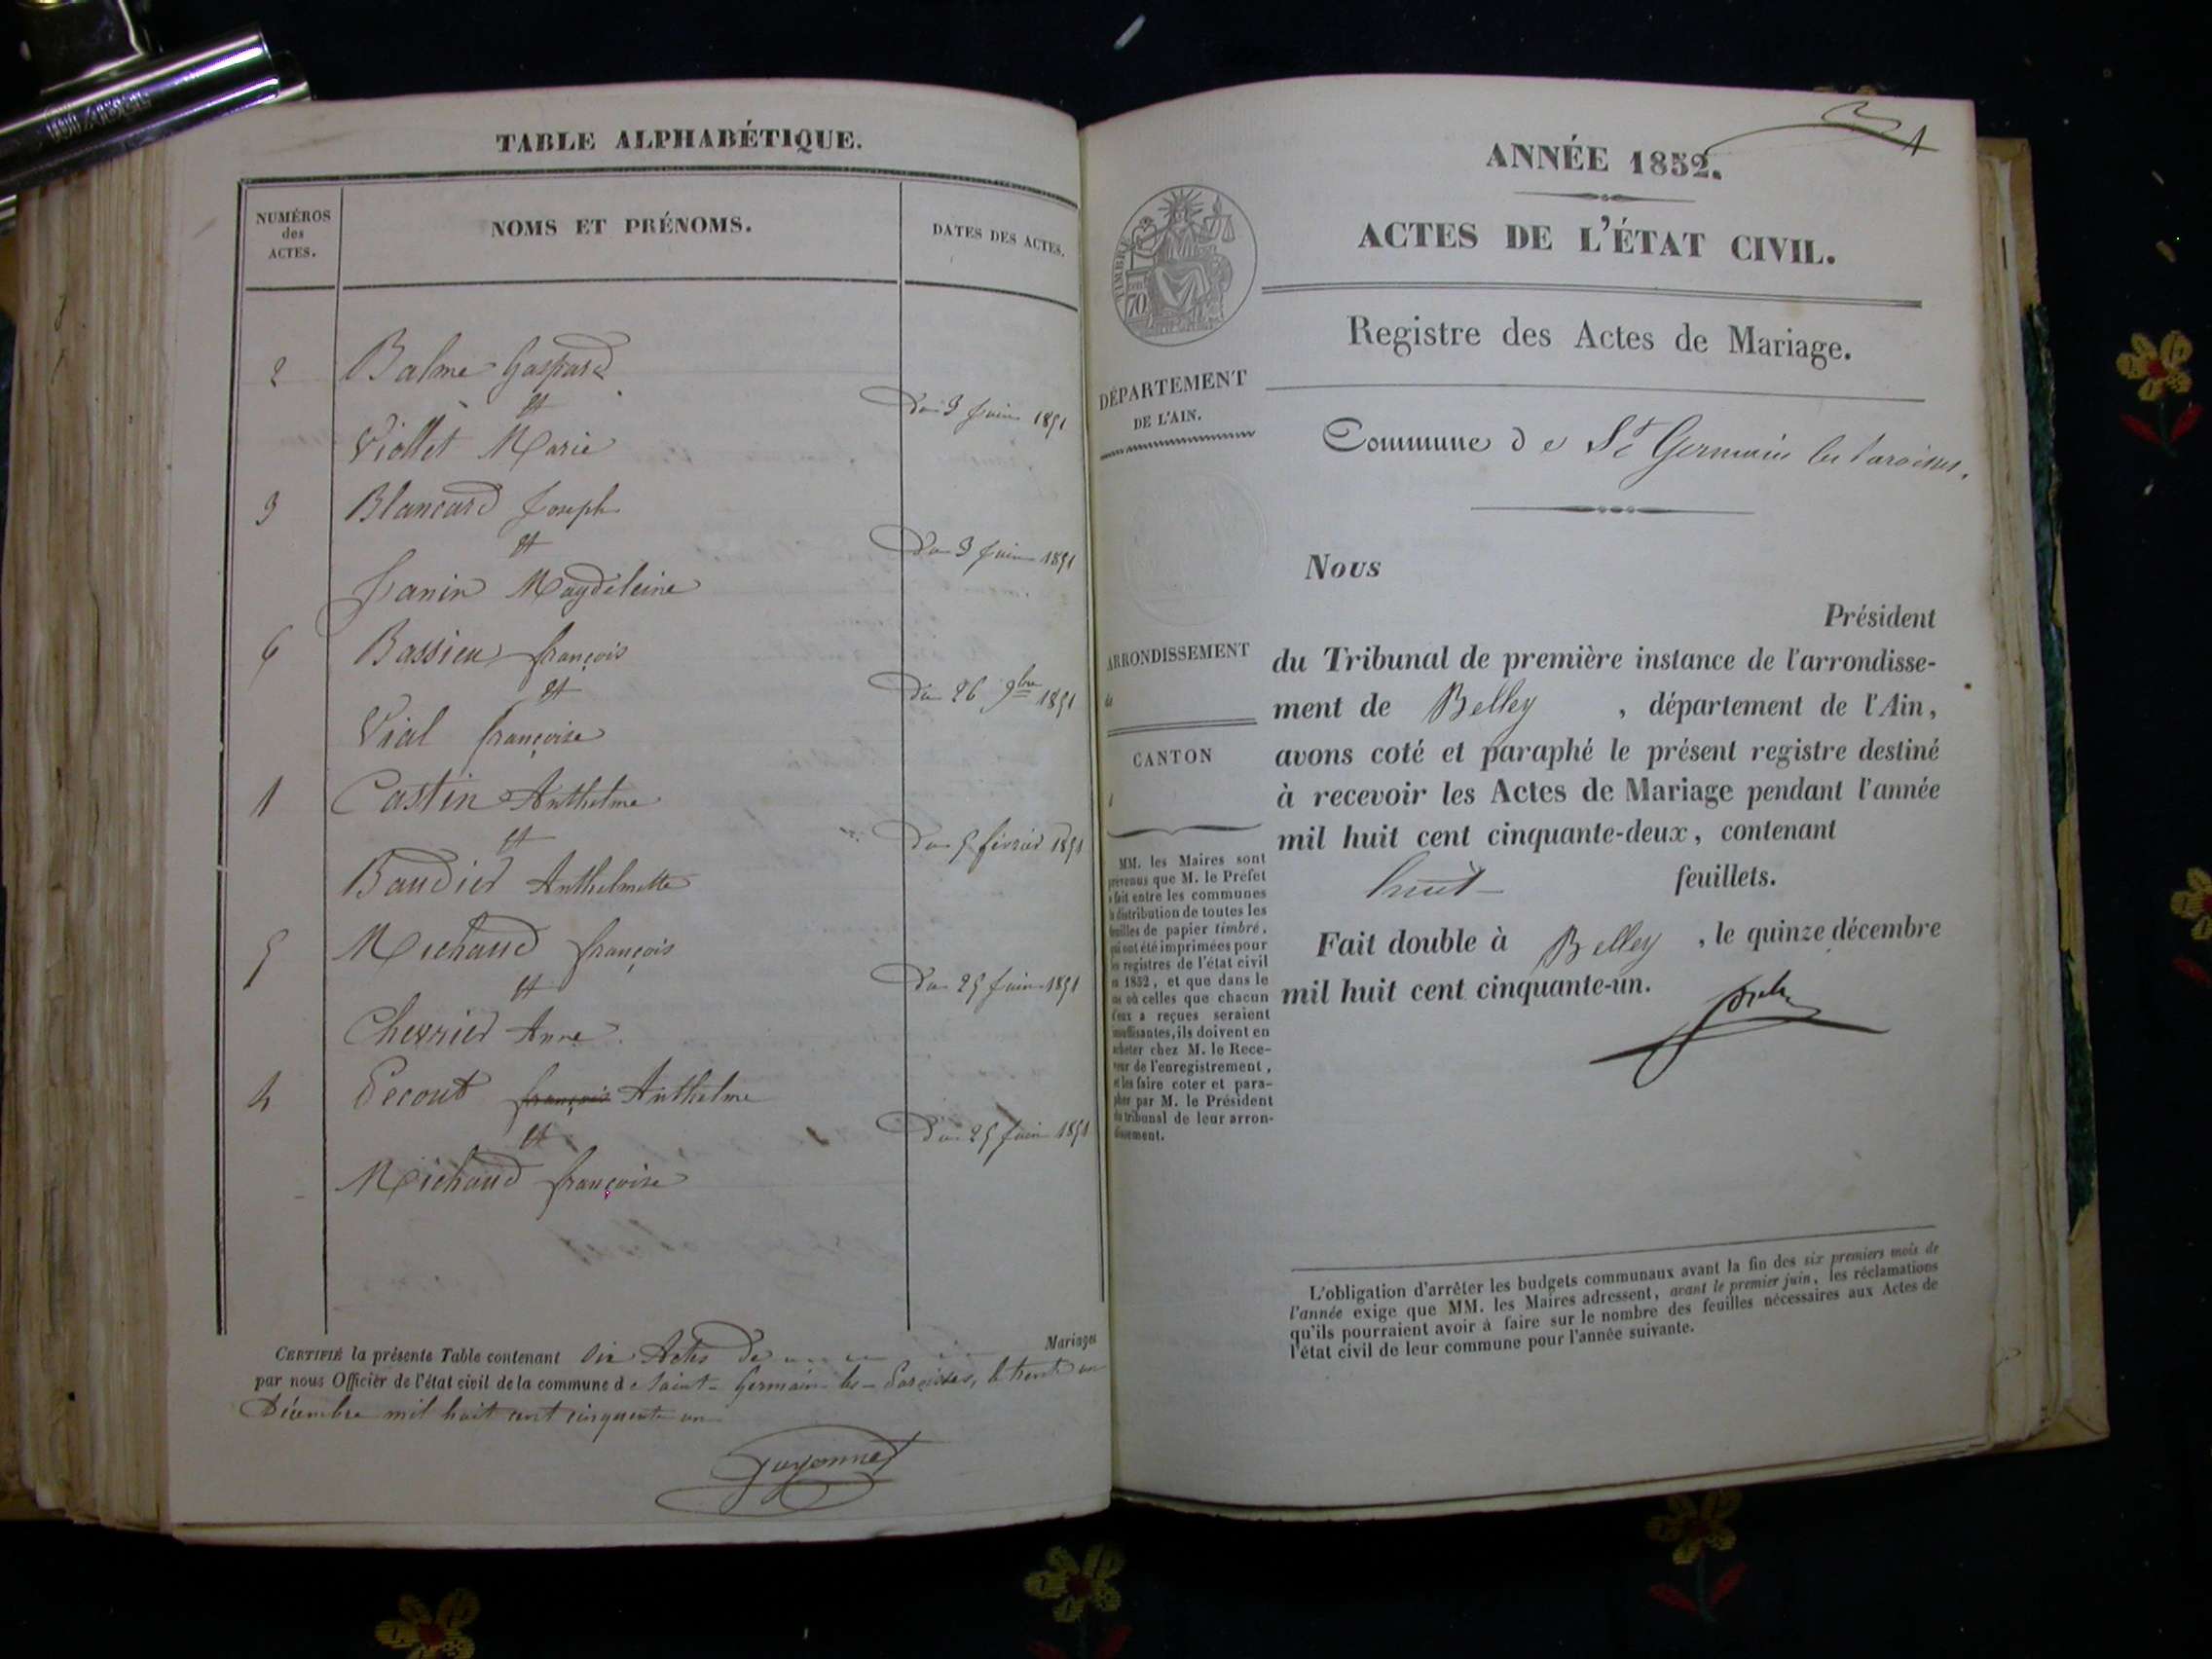 TABLE ALPHABÉTIQUE.
NUMÉROS
des
ACTES.
NOMS ET PRÉNOMS.
DATES DES ACTES.
2 Balme Gaspard
et
Du 3 Juin 1851
Viollet Marie
3 Blancard Joseph
et
Du 3 Juin 1851
Janin Magdeleine
6 Bassieu françois
et
Du 26 9bre 1851
Vial françoise
1 Castin Anthelme
et
Du 5 février 1851
Baudier Anthelmette
5 Michaud françois
et
Du 25 Juin 1851
Chevrier Anne
4 Pecout françois Anthelme
et
Du 25 Juin 1851
Michaud françoise
CERTIFIÉ la présente Table contenant Six Actes de Mariages
par nous Officier de l'état civil de la commune de Saint-Germain-les-Paroisses, le trente un
Décembre mil huit cent cinquante un
Guyonnet
1
ANNÉE 1852.
ACTES DE L'ÉTAT CIVIL.
TIMBRE
70
Registre des Actes de Mariage.
DÉPARTEMENT
DE L'AIN.
Commune de St Germain les Paroisses.
Nous
Président
ARRONDISSEMENT
CANTON
du Tribunal de première instance de l'arrondisse-
ment de Belley, département de l'Ain,
avons coté et paraphé le présent registre destiné
à recevoir les Actes de Mariage pendant l'année
mil huit cent cinquante-deux, contenant
huit feuillets.
Fait double à Belley, le quinze décembre
mil huit cent cinquante-un.
MM. les Maires sont
prévenus que M. le Préfet
a fait entre les communes
la distribution de toutes les
feuilles de papier timbré,
qui ont été imprimées pour
les registres de l'état civil
de 1852, et que dans le
cas où celles que chacun
d'eux a reçues seraient
insuffisantes, ils doivent en
acheter chez M. le Rece-
veur de l'enregistrement,
et les faire coter et para-
pher par M. le Président
du tribunal de leur arron-
dissement.
L'obligation d'arrêter les budgets communaux avant la fin des six premiers mois de
l'année exige que MM. les Maires adressent, avant le premier juin, les réclamations
qu'ils pourraient avoir à faire sur le nombre des feuilles nécessaires aux Actes de
l'état civil de leur commune pour l'année suivante.